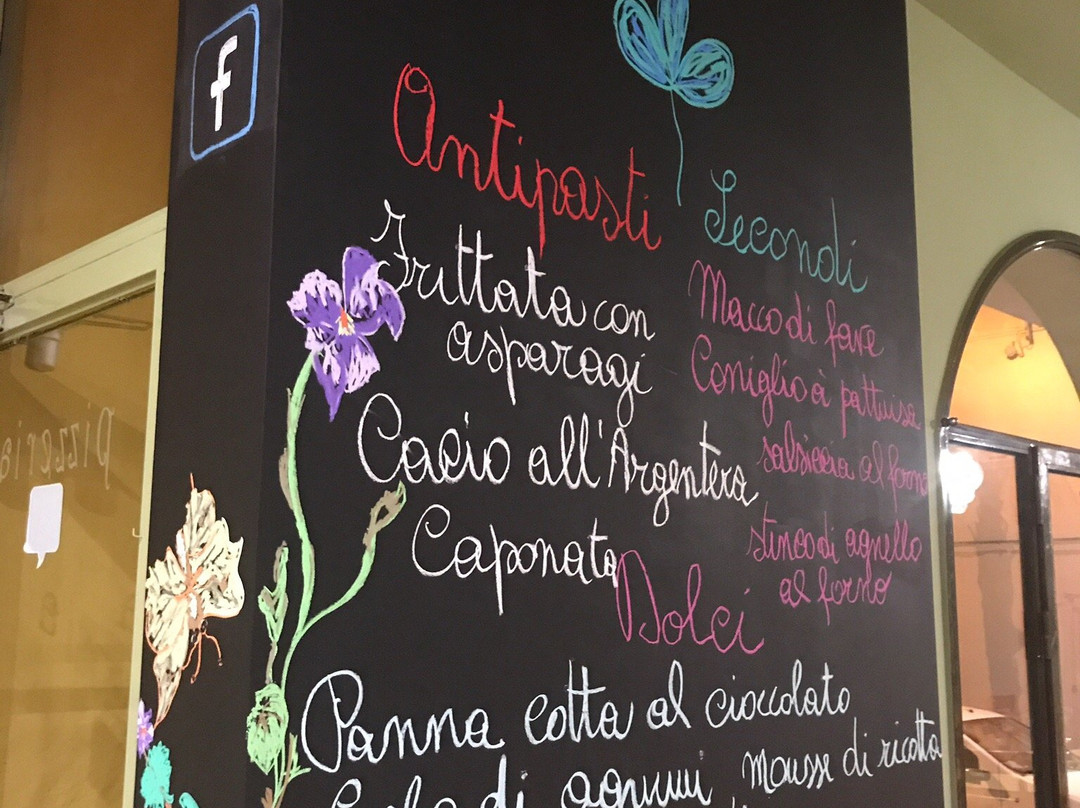 f
Antipasti
Frittata con
asparagi
Cacio all'Argentera
Caponata
Secondi
Macco di fave
Coniglio à pattuisa
salsiccia al forno
stinco di agnello
al forno
Dolci
Panna cotta al cioccolato
mousse di ricotta
di
pizzeria